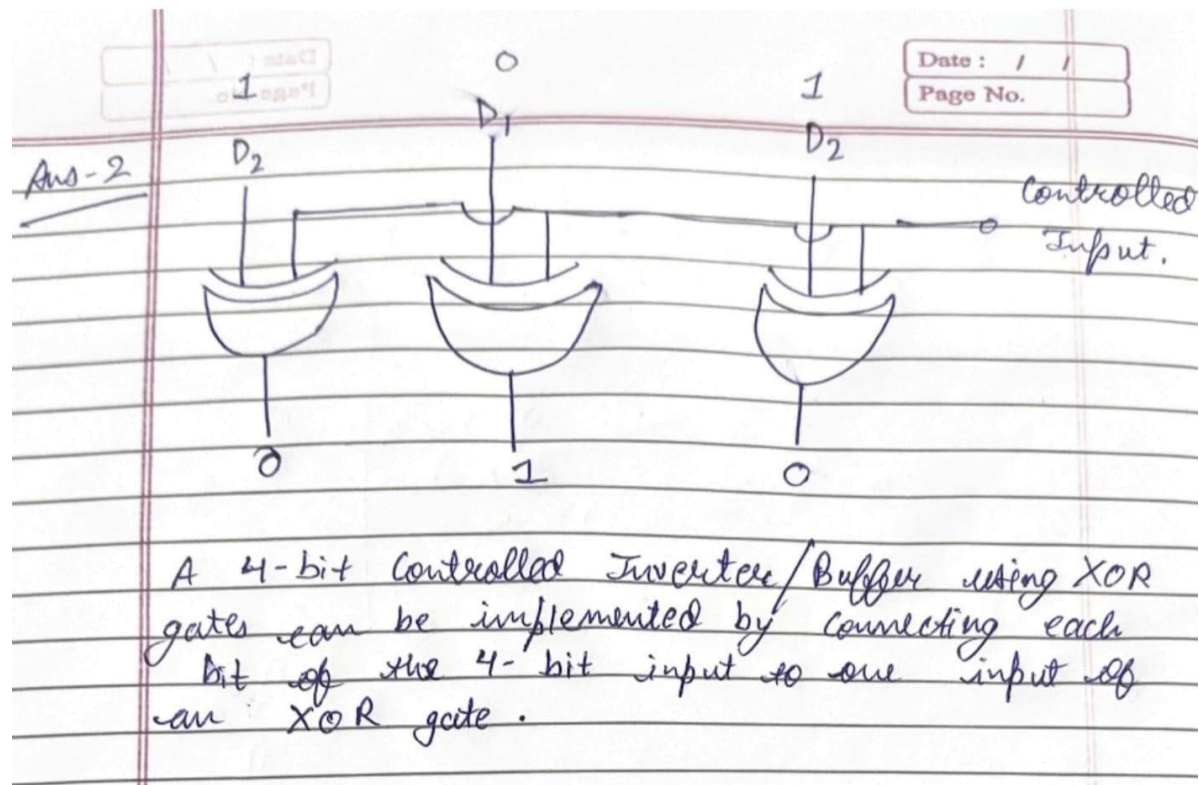 Date : / /
Page No.
1 0 1
D2 D1 D2
Ans-2
Controlled
Input.
0 1 0
A 4-bit Controlled Inverter/Buffer using XOR
gates can be implemented by connecting each
bit of the 4-bit input to one input of
an XOR gate.